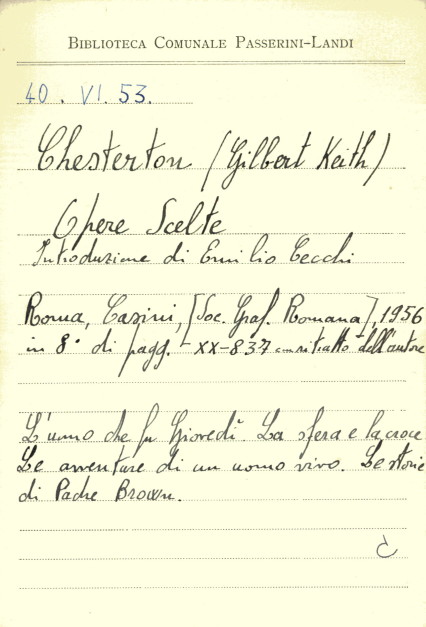 BIBLIOTECA COMUNALE PASSERINI-LANDI
40. VI. 53.
Chesterton (Gilbert Keith)
Opere Scelte
Introduzione di Emilio Cecchi
Roma, Casini, [Soc. Graf. Romana], 1956
in 8° di pagg. XX-837 con ritratto dell'autore
L'uomo che fu Giovedì. La sfera e la croce
Le avventure di un uomo vivo. Le storie
di Padre Brown.